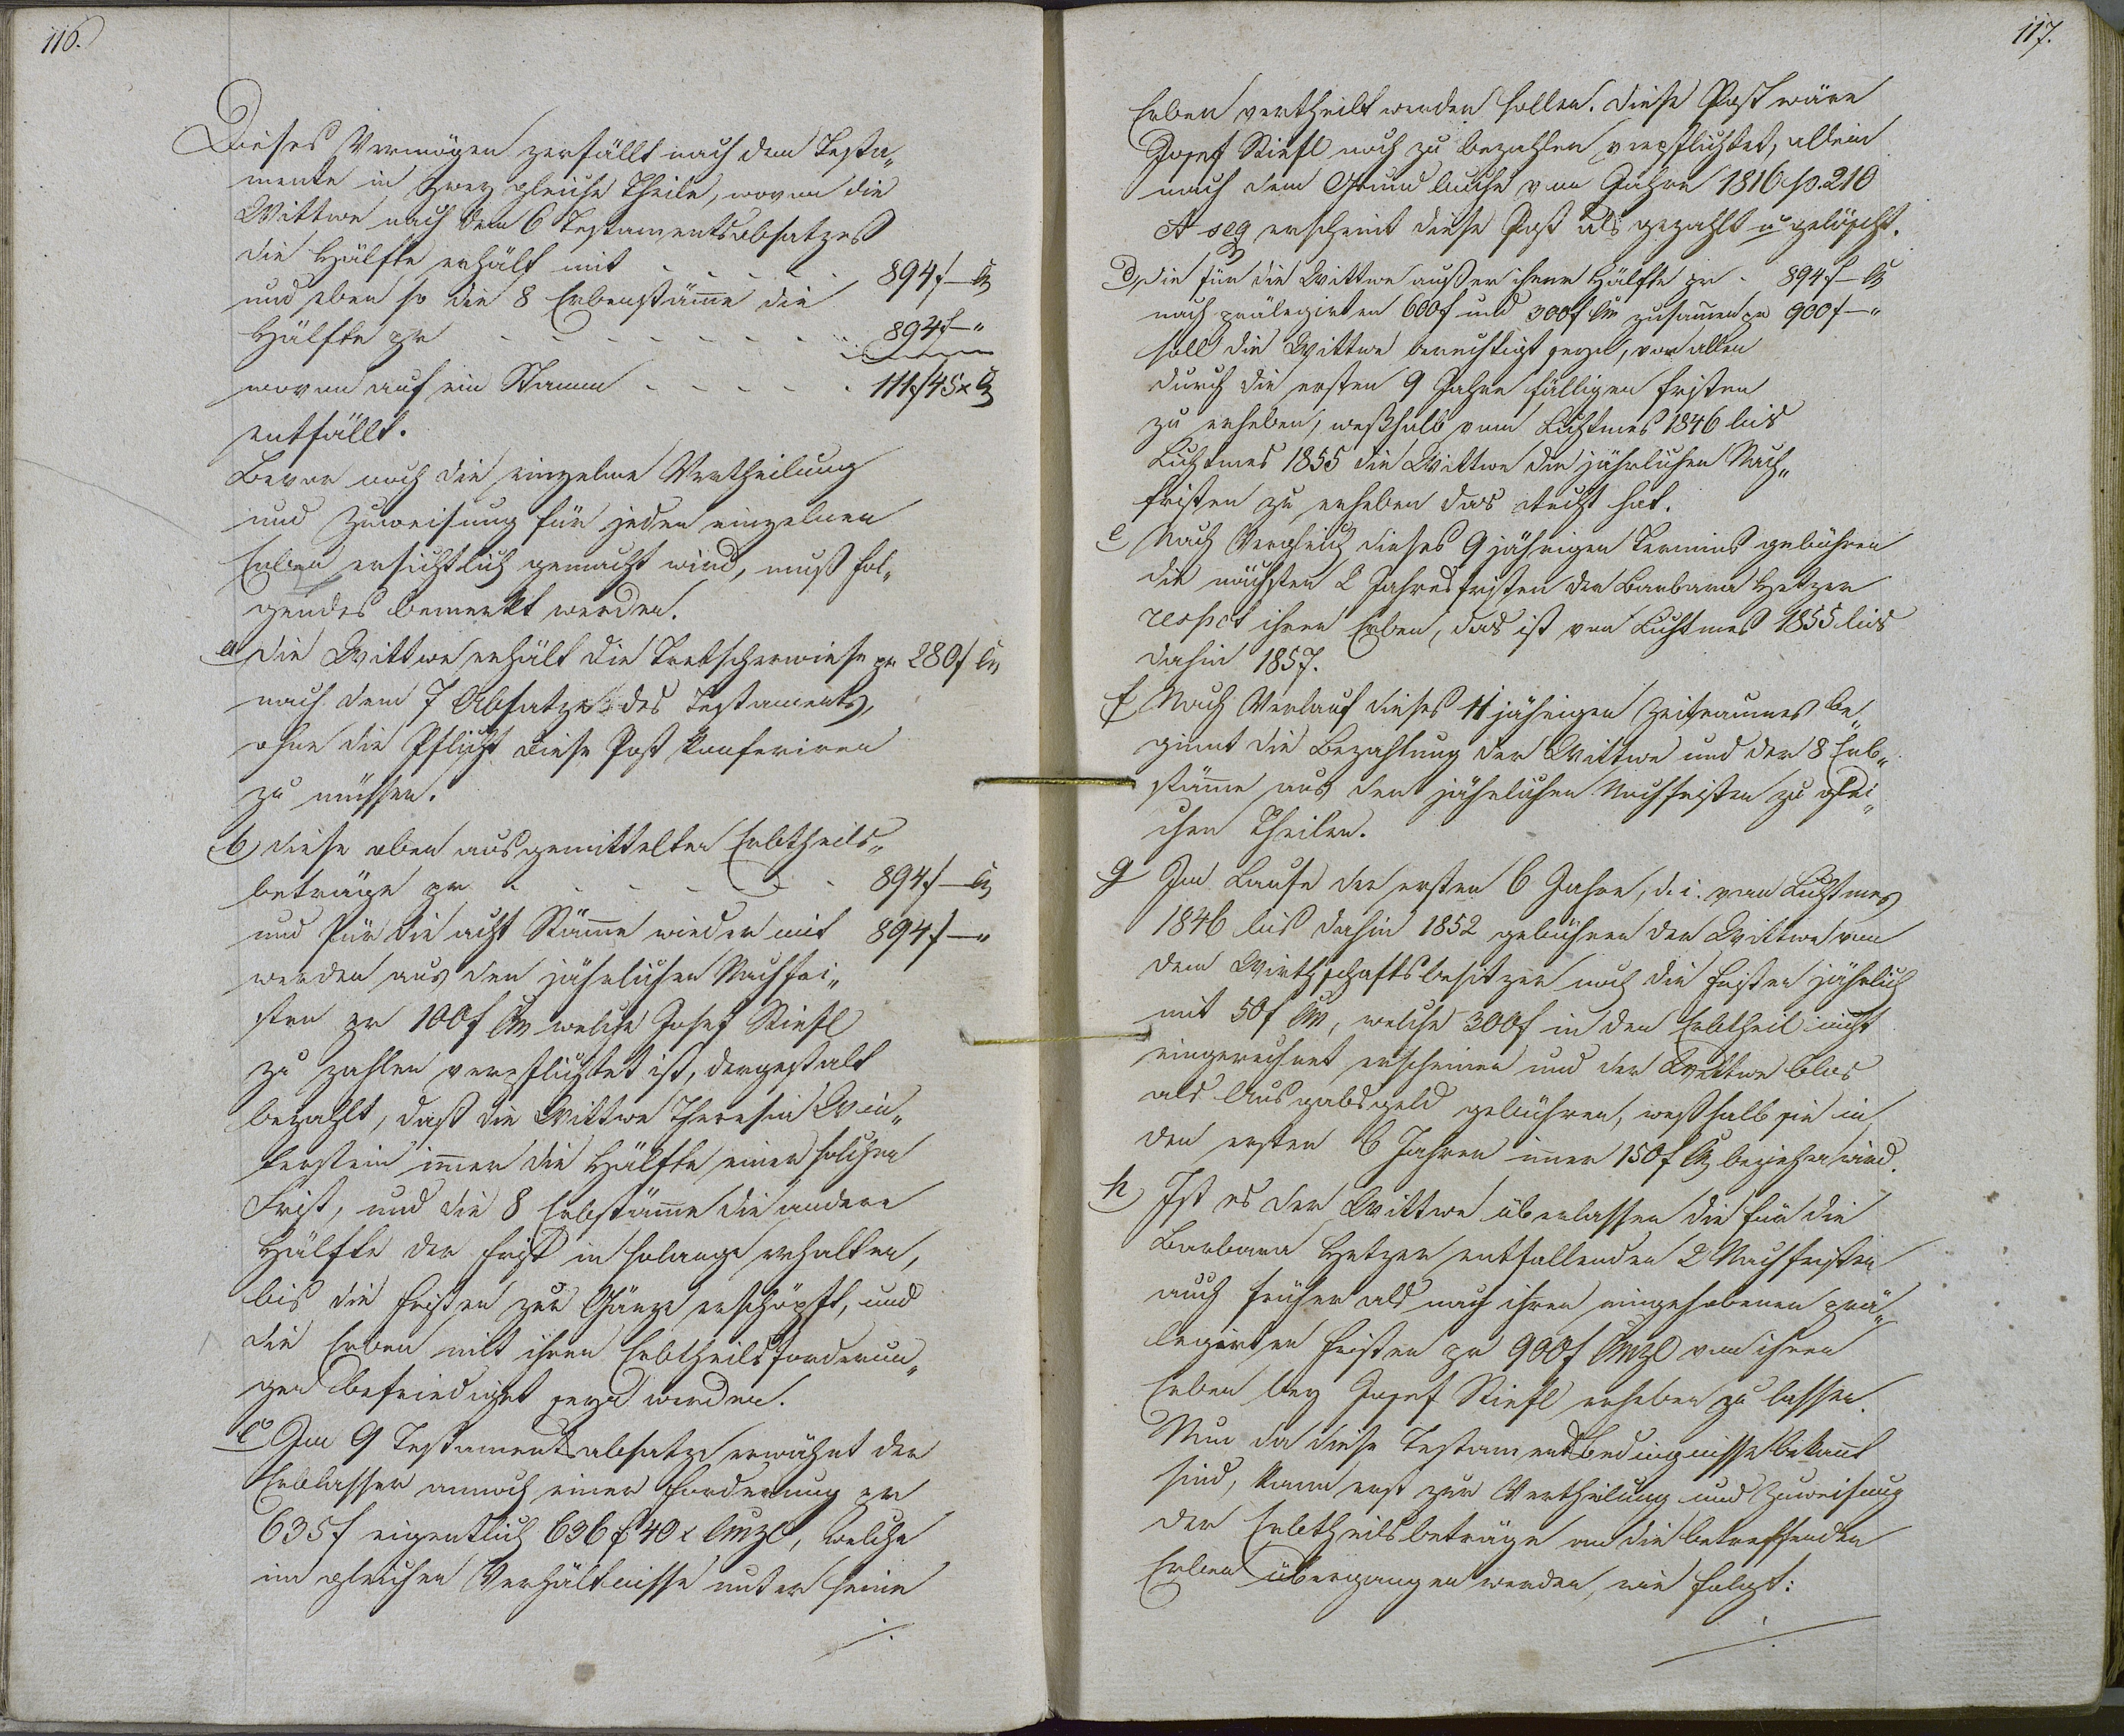 116.
Dieses Vermögen zerfällt nach dem Testa„
mente in zwey gleiche Theile, wovon die
Wittwe nach dem 6 Testamentsabsatzes
die Hälfte erhält mit . . . . . 894 f — Cm
und eben so die 8 Erbenstäme die
Hälfte pr . . . . . . . . 894 f — "
wovon auf ein Stamm . . . . . 111 f 45 x Cm
entfällt.
Bevor noch die einzelne Vertheilung
und Zuweisung für jeden einzelnen
Erben ersichtlich gemacht wird, muß fol„
gendes bemerkt werden.
a Die Wittwe erhält die pr 280 f Cm
nach dem 7 Absatze des Testaments,
ohne die Pflicht diese Post konferiren
zu müssen.
b, diese oben ausgemittelten Erbtheils„
beträge pr . . . . . . 894 f — Cm
und für die acht Stäme wieder mit 894 f — "
werden aus den jährlichen Nachfri„
sten pr 100 f Cm welche Josef Stiefl
zu zahlen verpflichtet ist, dergestalt
bezahlt, daß die Wittwe Theresia Win„
terstein imer die Hälfte einer solchen
Frist, und die 8 Erbstäme die andere
Hälfte der Frist in solange erhalten,
bis die Fristen zur Gänze erschöpft, und
die Erben mit ihren Erbtheilsforderun„
gen befriediget seyn werden.
c Im 9 Testamentsabsatze erwähnt der
Erblasser annoch einer Forderung pr
635 f eigentlich 636 f 40 x Cmzl, welche
im gleichen Verhältnisse unter seine
./.
117.
Erben vertheilt werden sollen. Diese Post wäre
Josef Stiefl noch zu bezahlen verpflichtet, allein
nach dem Grundbuche vom Jahre 1816 p. 210
et seq erscheint diese Post als gezahlt u gelöscht.
d, Die für die Wittwe außer ihrer Hälfte pr . 894 f — Cm
noch prälegirten 600 f und 300 f Cm zusamen pr 900 f — "
soll die Wittwe berechtigt seyn, vor allen
durch die ersten 9 Jahre fälligen Fristen
zu erheben, weßhalb vom Lichtmes 1846 bis
Lichtmes 1855 die Wittwe die jährlichen Nach„
fristen zu erheben das Recht hat.
e Nach Vergleich dieses 9 jährigen Termins gebühren
die nächsten 2 Jahresfristen der Barbara Hetzer
respct ihren Erben, das ist von Lichtmes 1855 bis
dahin 1857.
f Nach Verlauf dieses 11 jährigen Zeitraumes be„
ginnt die Bezahlung der Wittwe und der 8 Erb„
stäme aus den jährlichen Nachfristen zu glei„
chen Theilen.
g Im Laufe der ersten 6 Jahre, d. i. vom Lichtmes
1846 bis dahin 1852 gebühren der Wittwe von
dem Wirthschaftsbesitzer noch die Fristen jährlich
mit 50 f Cm, welche 300 f in den Erbtheil nicht
eingerechnet erscheinen und der Wittwe blos
als Ausgabsgeld gebühren, weßhalb sie in
den ersten 6 Jahren imer 150 f Cm beziehen wird.
h, Ist es der Wittwe überlassen die für die
Barbara Hetzer entfallenden 2 Nachfristen
auch früher als nach ihren eingehobenen prä„
legirten Fristen pr 900 f Cmzl von ihren
Erben bey Josef Stiefl erheben zu lassen.
Nun da diese Testamentsbedingnisse bekant
sind, kann erst zur Vertheilung und Zuweisung
der Erbtheilsbeträge an die betreffenden
Erben übergangen werden, wie folgt:
./.